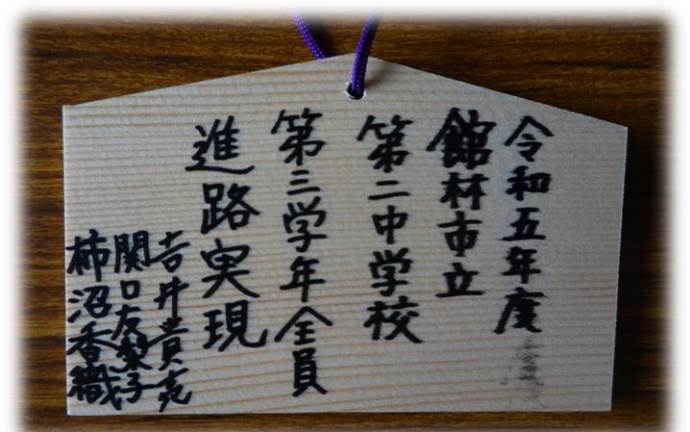 令和五年度
館林市立
第二中学校
第三学年全員
進路実現
吉井貴亮
関口友梨子
柿沼香織